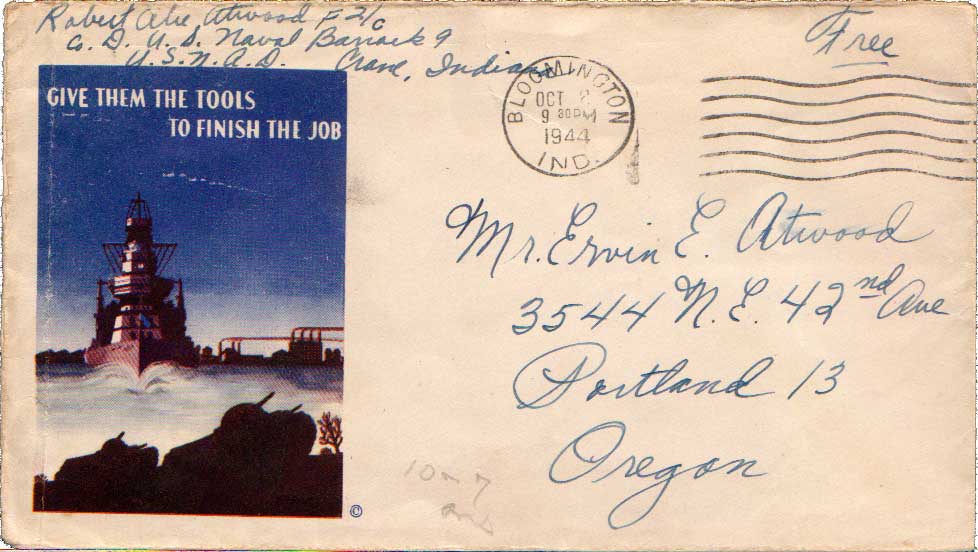 Robert Abe Atwood F 2/c
Co. D. U. S. Naval Barracks 9
U.S.N.A.D. Crane, Indiana
Free
GIVE THEM THE TOOLS
TO FINISH THE JOB
BLOOMINGTON
OCT
9 30 PM
1944
IND.
Mr. Ervin E. Atwood
3544 N.E. 42nd Ave
Portland 13
Oregon
10-7
©